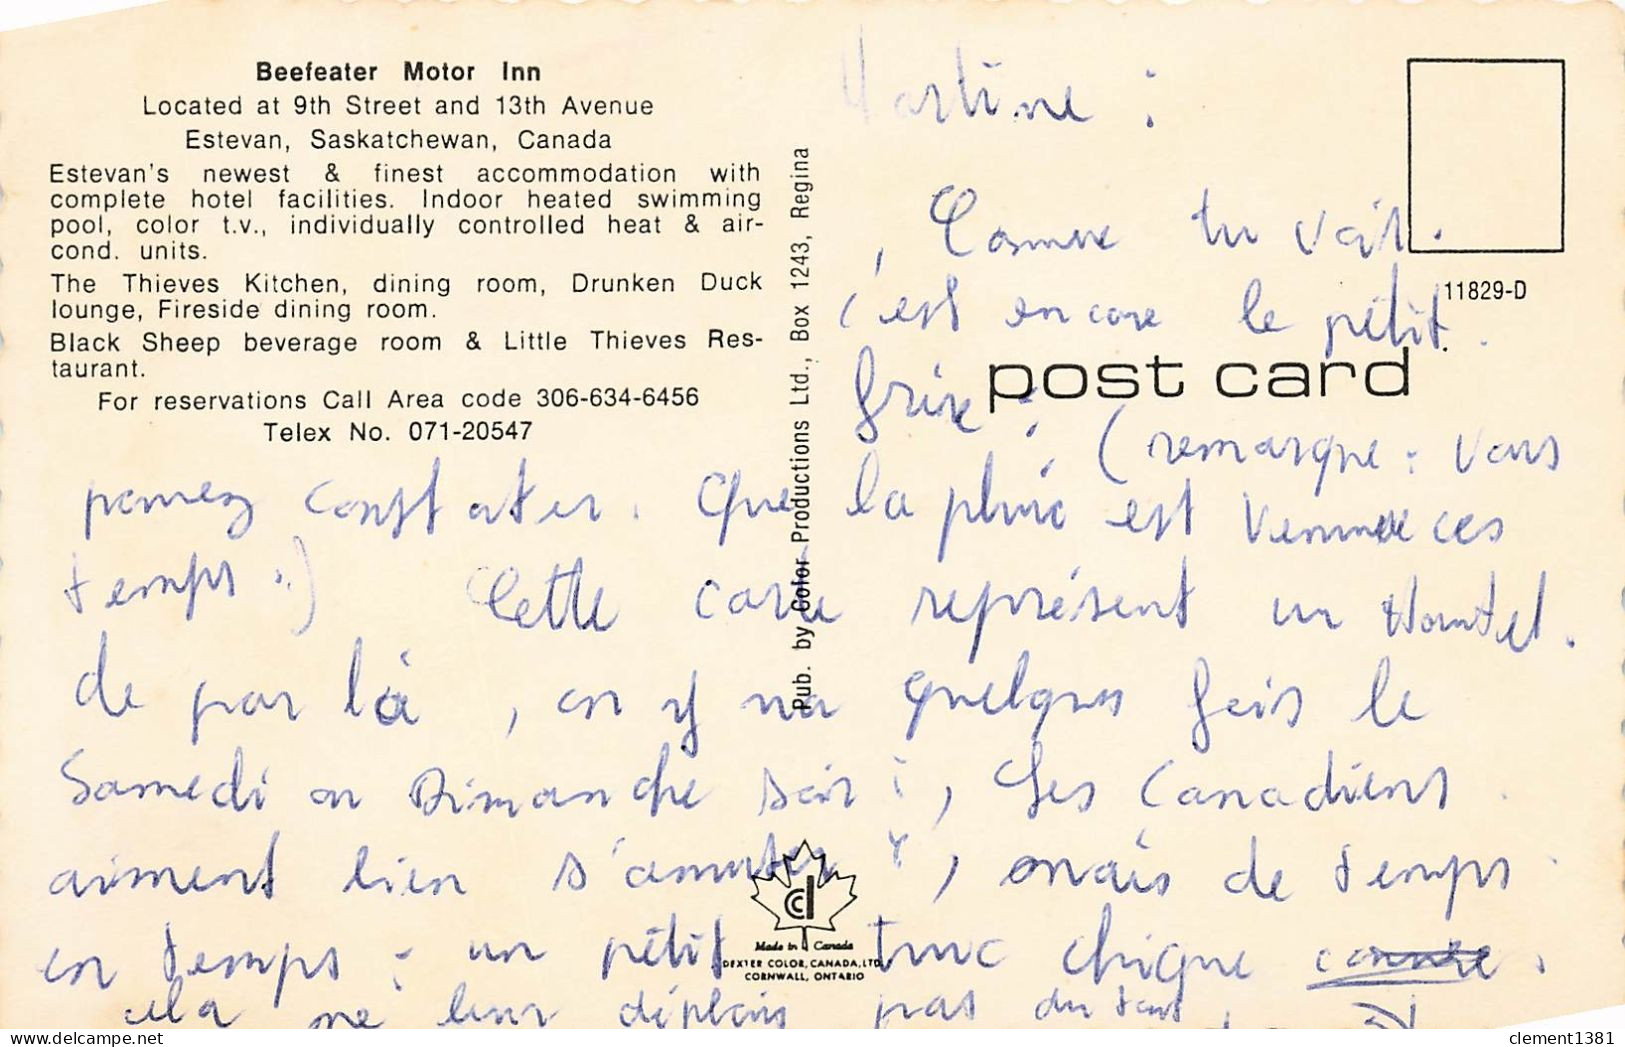 Beefeater Motor Inn
Located at 9th Street and 13th Avenue
Estevan, Saskatchewan, Canada
Estevan's newest & finest accommodation with
complete hotel facilities. Indoor heated swimming
pool, color t.v., individually controlled heat & air-
cond. units.
The Thieves Kitchen, dining room, Drunken Duck
lounge, Fireside dining room.
Black Sheep beverage room & Little Thieves Res-
taurant.
For reservations Call Area code 306-634-6456
Telex No. 071-20547
Pub. by Color Productions Ltd., Box 1243, Regina
11829-D
post card
Martine :
Comme tu vois.
c'est encore le pétit.
(remarque : vous
pouvez constater. Que la pluie est ces
temps :) Cette carte représent un
de par là, on y va quelques fois le
Samedi ou Dimanche soir :, Les Canadiens
aiment bien s'amuser, mais de temps
en temps : un pétit truc chique comme.
cela ne leur déplais pas du tout
Made in Canada
DEXTER COLOR, CANADA, LTD.
CORNWALL, ONTARIO
clement1381